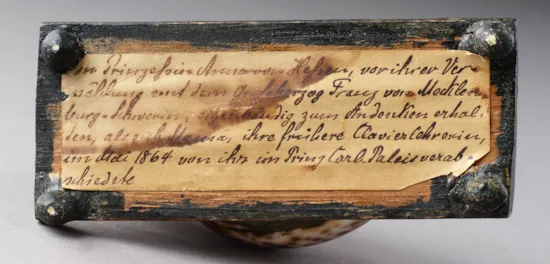 Von Prinzessin Anna von Hessen, vor ihrer Ver-
mählung mit dem Großherzog Franz von Mecklen-
burg-Schwerin, eigenhändig zum Andenken erhal-
ten, als ich Mama, ihre frühere Clavierlehrerin,
im Mai 1864 von ihr im Prinz Carl Palais verab-
schiedete